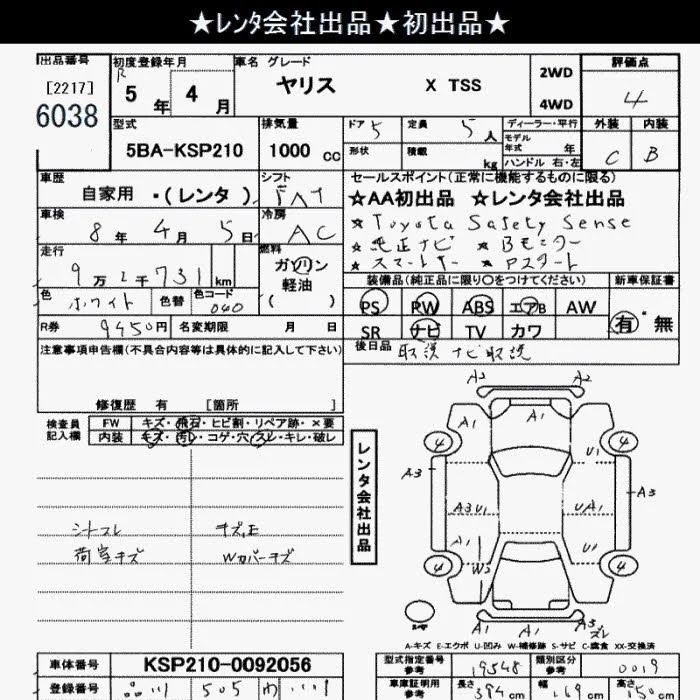 ★レンタ会社出品★初出品★
出品番号 初度登録年月 車名 グレード 評価点
[2217] R 5年 4月 ヤリス X TSS 2WD 4
6038 4WD
型式 排気量 ドア 5 定員 5人 ディーラー・平行 外装 内装
5BA-KSP210 1000 cc 形状 積載 kg モデル年式 年 C B
ハンドル 右・左
車歴 シフト セールスポイント(正常に機能するものに限る)
自家用 ・(レンタ) FAT ★AA初出品 ★レンタ会社出品
車検 冷房 ★ Toyota Safety Sense
8年 4月 5日 AC ★ 純正ナビ ★ Bモニター
走行 燃料 ★ スマートキー ★ Pスタート
9万2千731km ガソリン 装備品(純正品に限り○をつけてください) 新車保証書
軽油
( )
色 ホワイト 色替 色コード 040 PS PW ABS エアB AW 有・無
R券 9450円 名変期限 月 日 SR ナビ TV カワ
注意事項申告欄(不具合内容等は具体的に記入して下さい) 後日品 取説 ナビ取説
修復歴 有 [箇所 ]
検査員記入欄 FW キズ・飛石・ヒビ割・リペア跡・×要
内装 キズ・汚レ・コゲ・穴・スレ・キレ・破レ
レンタ会社出品
A2 A2
A1 A1
4 U1 4
A3 A3
A3U1 UA1
A1 U1
4 W2 4
A1 A1 A1
スレ
シートスレ
荷室キズ Wカバーキズ
A-キズ E-エクボ U-凹み W-補修跡 S-サビ C-腐食 XX-交換済
車体番号 KSP210-0092056 型式指定番号 参考 19548 類別区分 参考 0019
登録番号 品川 505 わ 車庫証明用 参考 長さ 394cm 幅 169cm 高さ 150cm